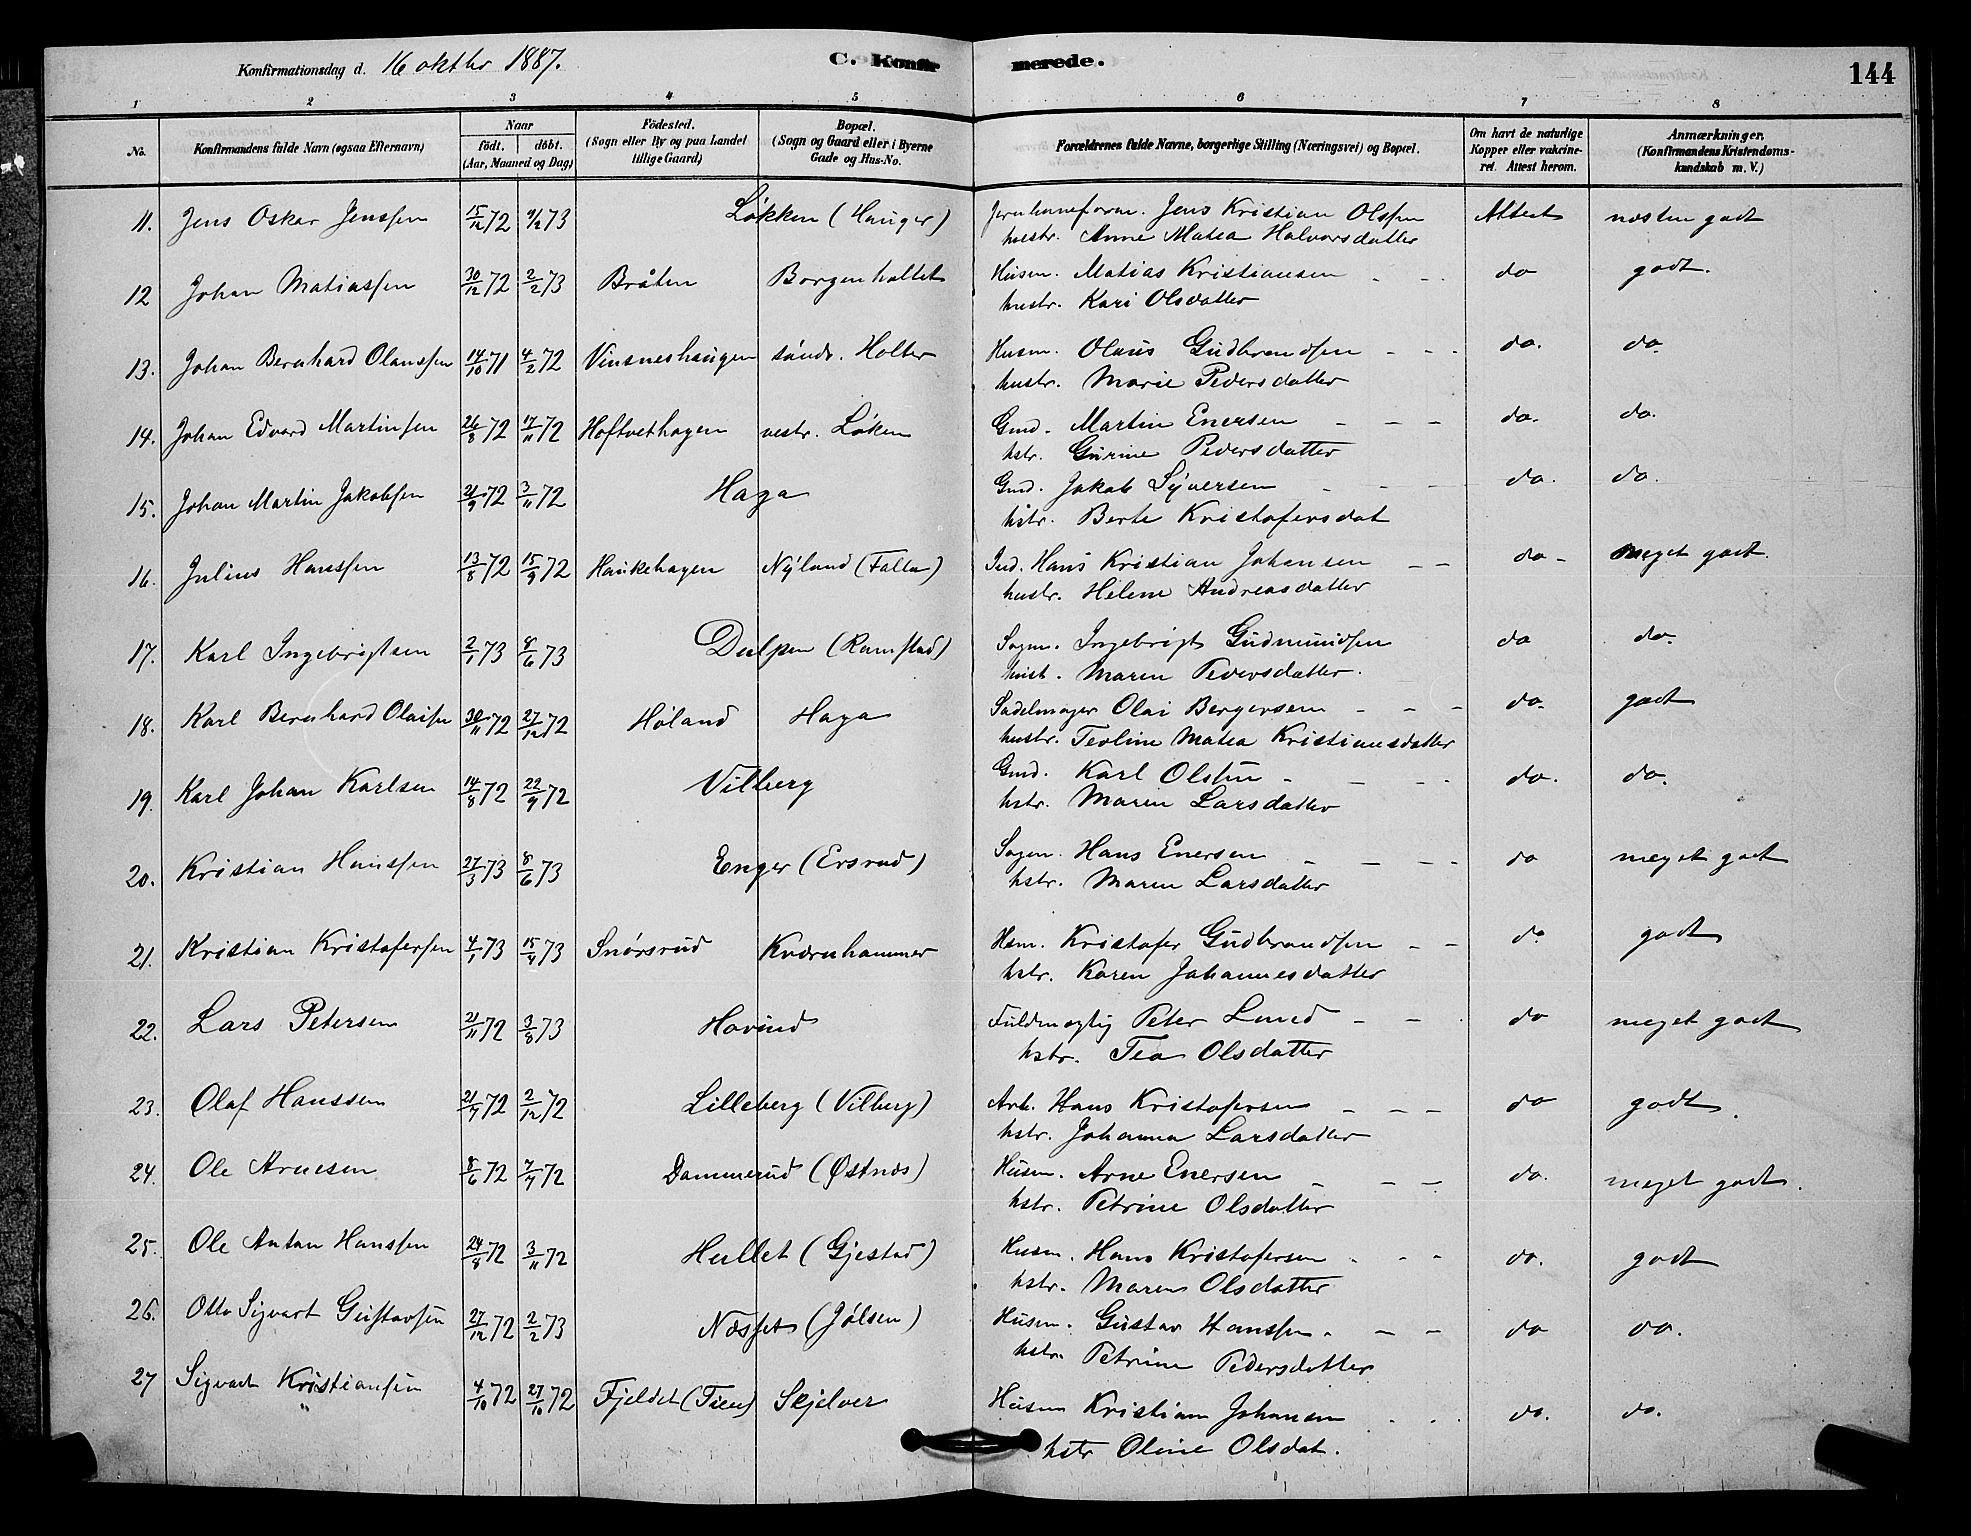 Konfirmationsdag d. 16 oktbr 1887. C. Konfirmerede. 144
1 2 3 4 5 6 7 8
No. Konfirmandens fulde Navn (ogsaa Efternavn) Naar födt. döbt. (Aar, Maaned og Dag) Födested. (Sogn eller By og paa Landet tillige Gaard) Bopæl. (Sogn og Gaard eller i Byerne Gade og Hus-No. Forældrenes fulde Navne, borgerlige Stilling (Næringsvei) og Bopæl. Om havt de naturlige Kopper eller vakcineret. Attest herom. Anmærkninger. (Konfirmandens Kristendomskundskab m. V.)
11. Jens Oskar Jenssen 15/12 72 9/2 73 Løkken (Hauger) Jens Kristian Olssen Attest næsten godt
hustr. Anne Matea Halvorsdatter
12 Johan Matiassen 30/12 72 2/2 73 Bråten Borgenholtet Husm. Matias Kristiansen - - do godt.
hustr. Kari Olsdatter
13. Johan Bernhard Olaussen 14/10 71 4/2 72 Vinsneshaugen søndr. Holter Husm. Olaus Gudbrandsen - - - do. do.
hustr. Marie Pedersdatter
14. Johan Edvard Martinsen 26/8 72 17/11 72 Hoftvethagen vestr. Løken Gmd. Martin Enersen - - - do. do.
hstr. Gurine Pedersdatter
15. Johan Martin Jakobsen 21/9 72 3/11 72 Haga Gmd. Jakob Syversen - - - do. do.
hstr. Berte Kristofersdat
16. Julius Hanssen 13/8 72 15/9 72 Haukehagen Nyland (Falla) Ind. Hans Kristian Johansen - - do - meget godt.
hustr. Helene Andreasdatter
17. Karl Ingebrigtsen 2/1 73 8/6 73 Dulpen (Ramstad) Sagm. Ingebrigt Gudmundsen do do.
hust. Maren Pedersdatter.
18. Karl Bernhard Olaisen 30/11 72 27/12 72 Høland Haga Sadelmager Olai Bergersen - - - do. godt
hustr. Teoline Matea Kristiansdatter
19. Karl Johan Karlsen 14/8 72 22/9 72 Vilberg Gmd. Karl Olsen - - - do. do.
hstr. Maren Larsdatter
20. Kristian Hanssen 27/3 73 8/6 73 Enger (Ersrud) Sagm. Hans Enersen - - - do meget godt
hstr. Maren Larsdatter
21. Kristian Kristofersen 4/1 73 15/4 73 Snørsrud Kværnhammer Hsm. Kristofer Gudbrandsen - - do godt
hstr. Karen Johannesdatter
22. Lars Petersen 21/11 72 3/8 73 Hovind Fuldmægtig Peter Lund - - do meget godt
hstr. Tea Olsdatter
23. Olaf Hanssen 21/9 72 2/12 72 Lilleberg (Vilberg) Arb. Hans Kristofersen - - - do godt.
hstr. Johanna Larsdatter
24. Ole Arnesen 8/6 72 7/7 72 Dammerud (Østnæs) Husm. Arne Enersen - - - do. meget godt.
hstr. Petrine Olsdatter
25. Ole Anton Hanssen 24/8 72 3/11 72 Hullet (Gjestad) Husm. Hans Kristofersen - - - do. godt
hstr. Maren Olsdatter
26. Otto Sigvart Gustavsen 27/12 72 2/2 73 Næsset (Jølsen) Husm. Gustav Hanssen. - - do do.
hstr. Petrine Pedersdatter
27 Sigvart Kristiansen 4/10 72 27/10 72 Fjeldet (Tien) Skjelver Husm Kristian Johansen - - do. do.
hstr Oline Olsdat.